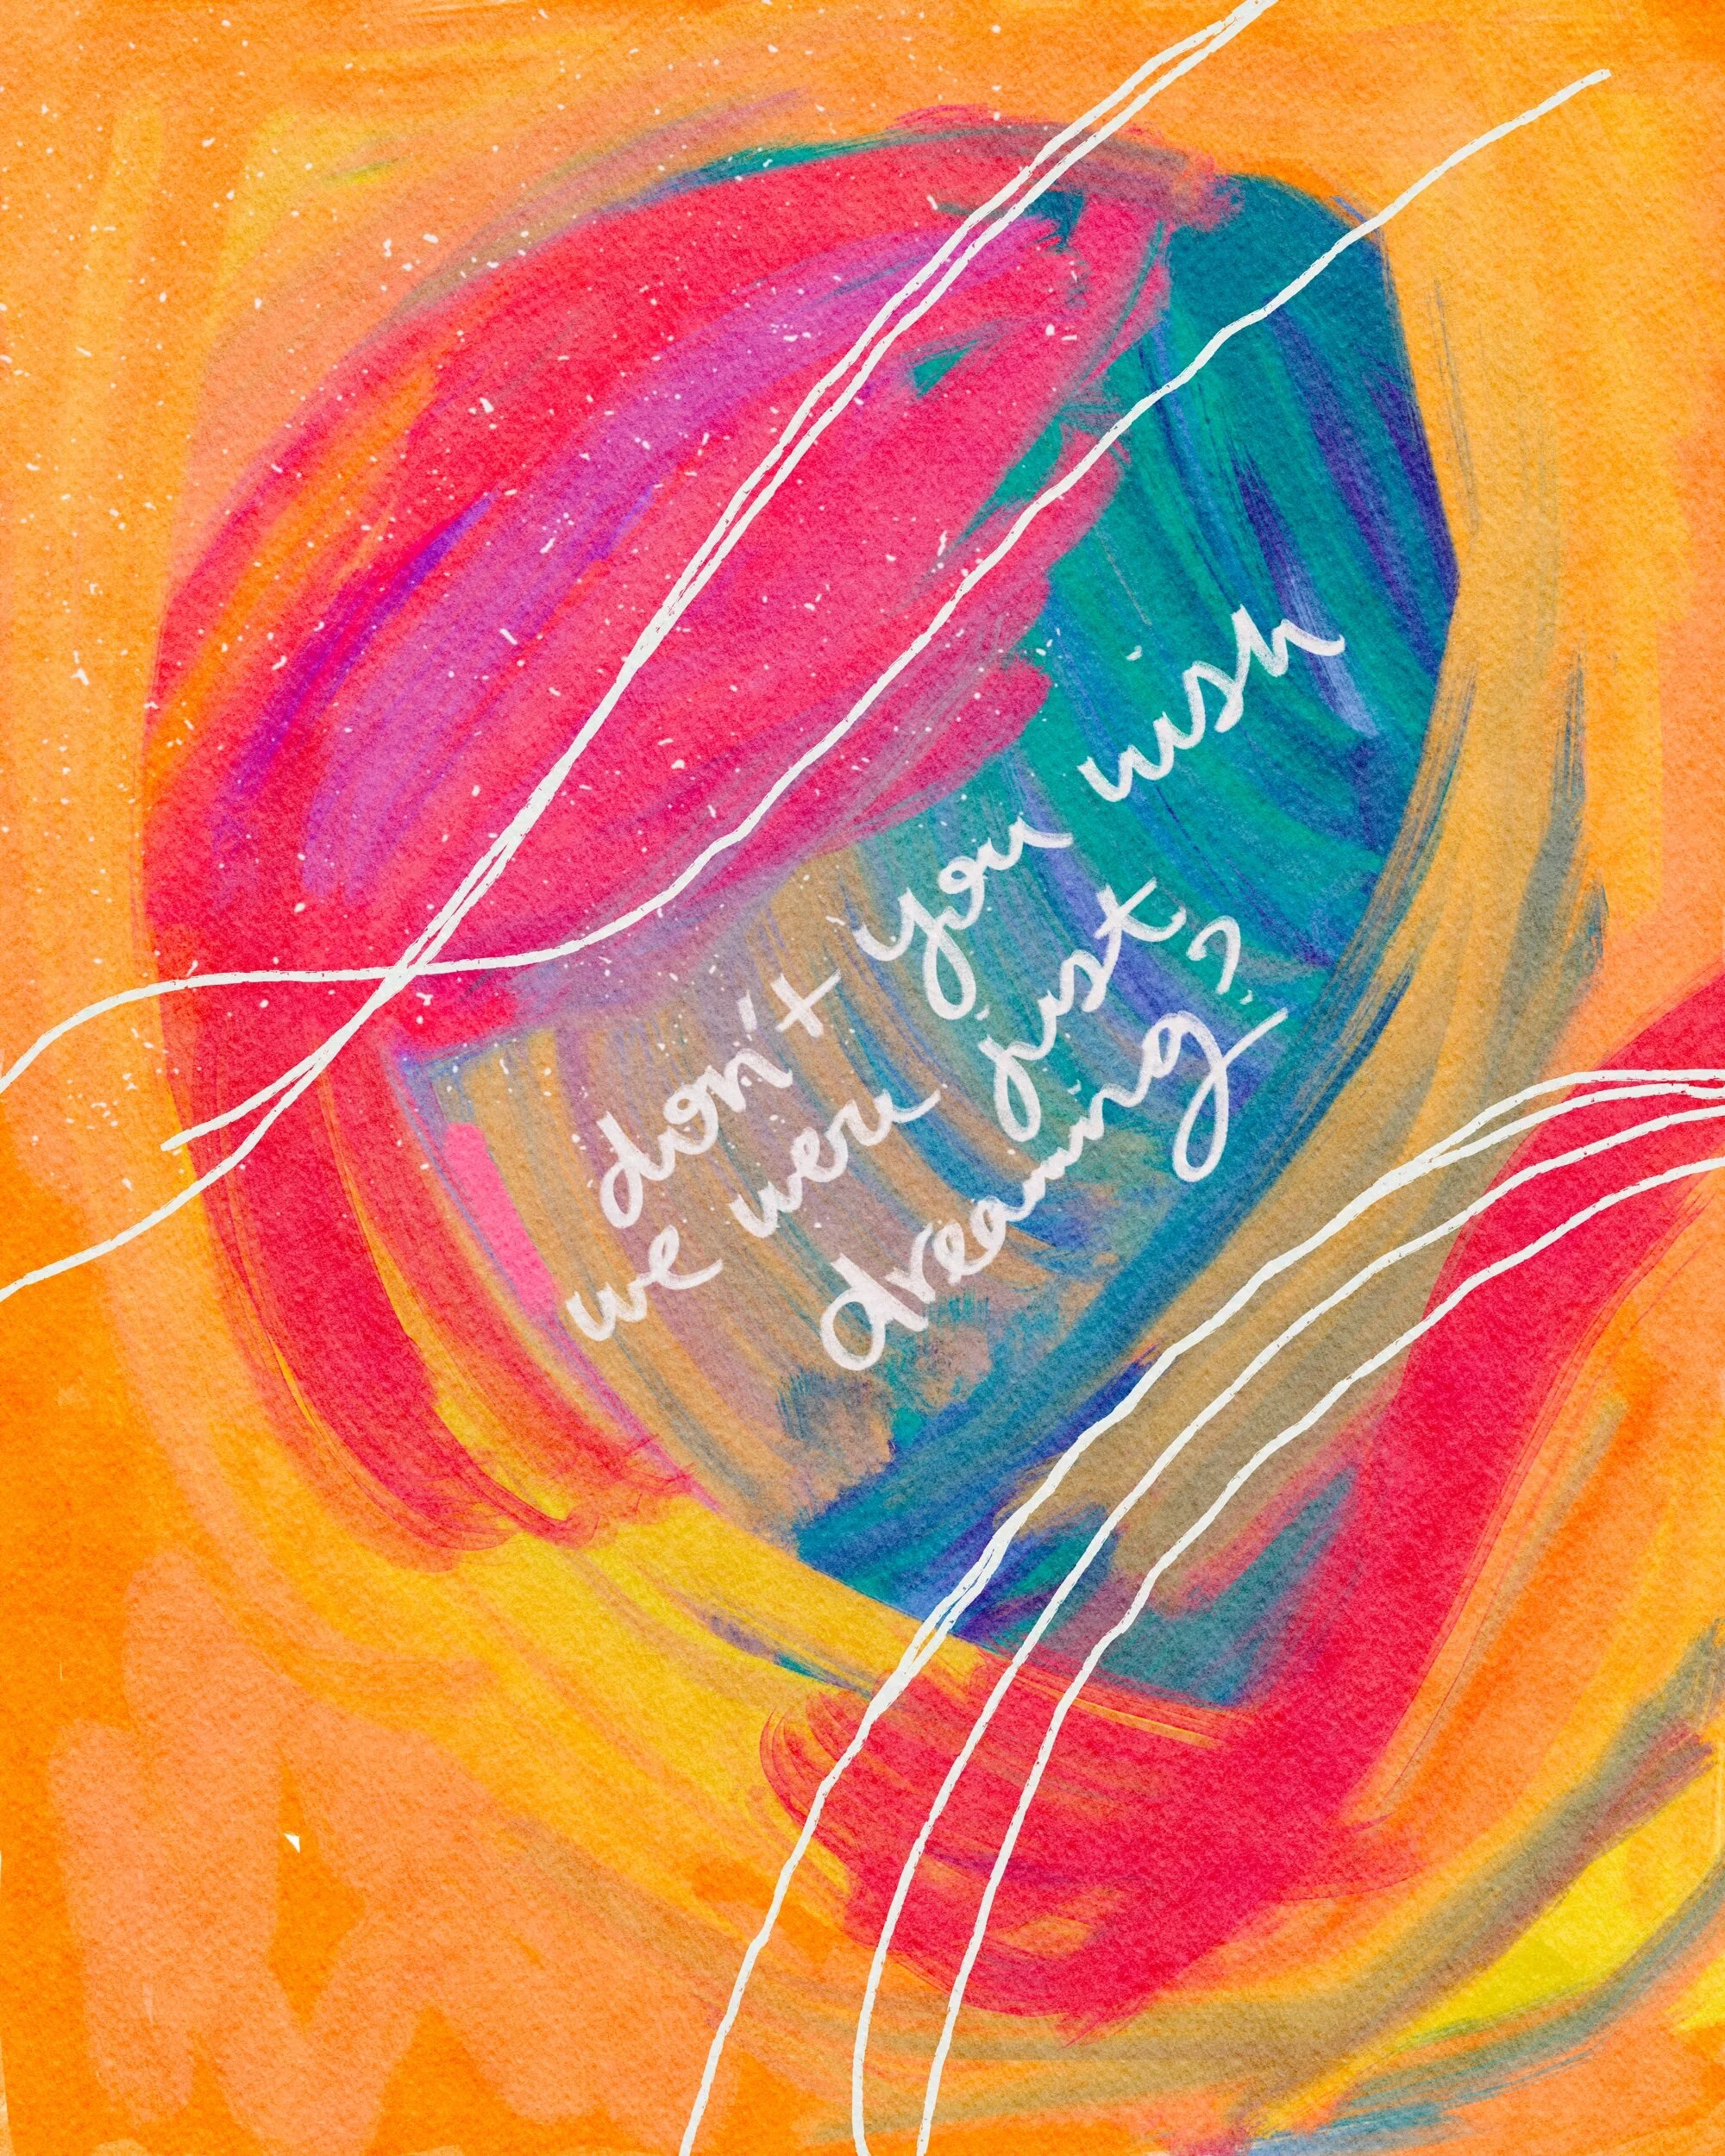 don't you wish
we were just
dreaming?